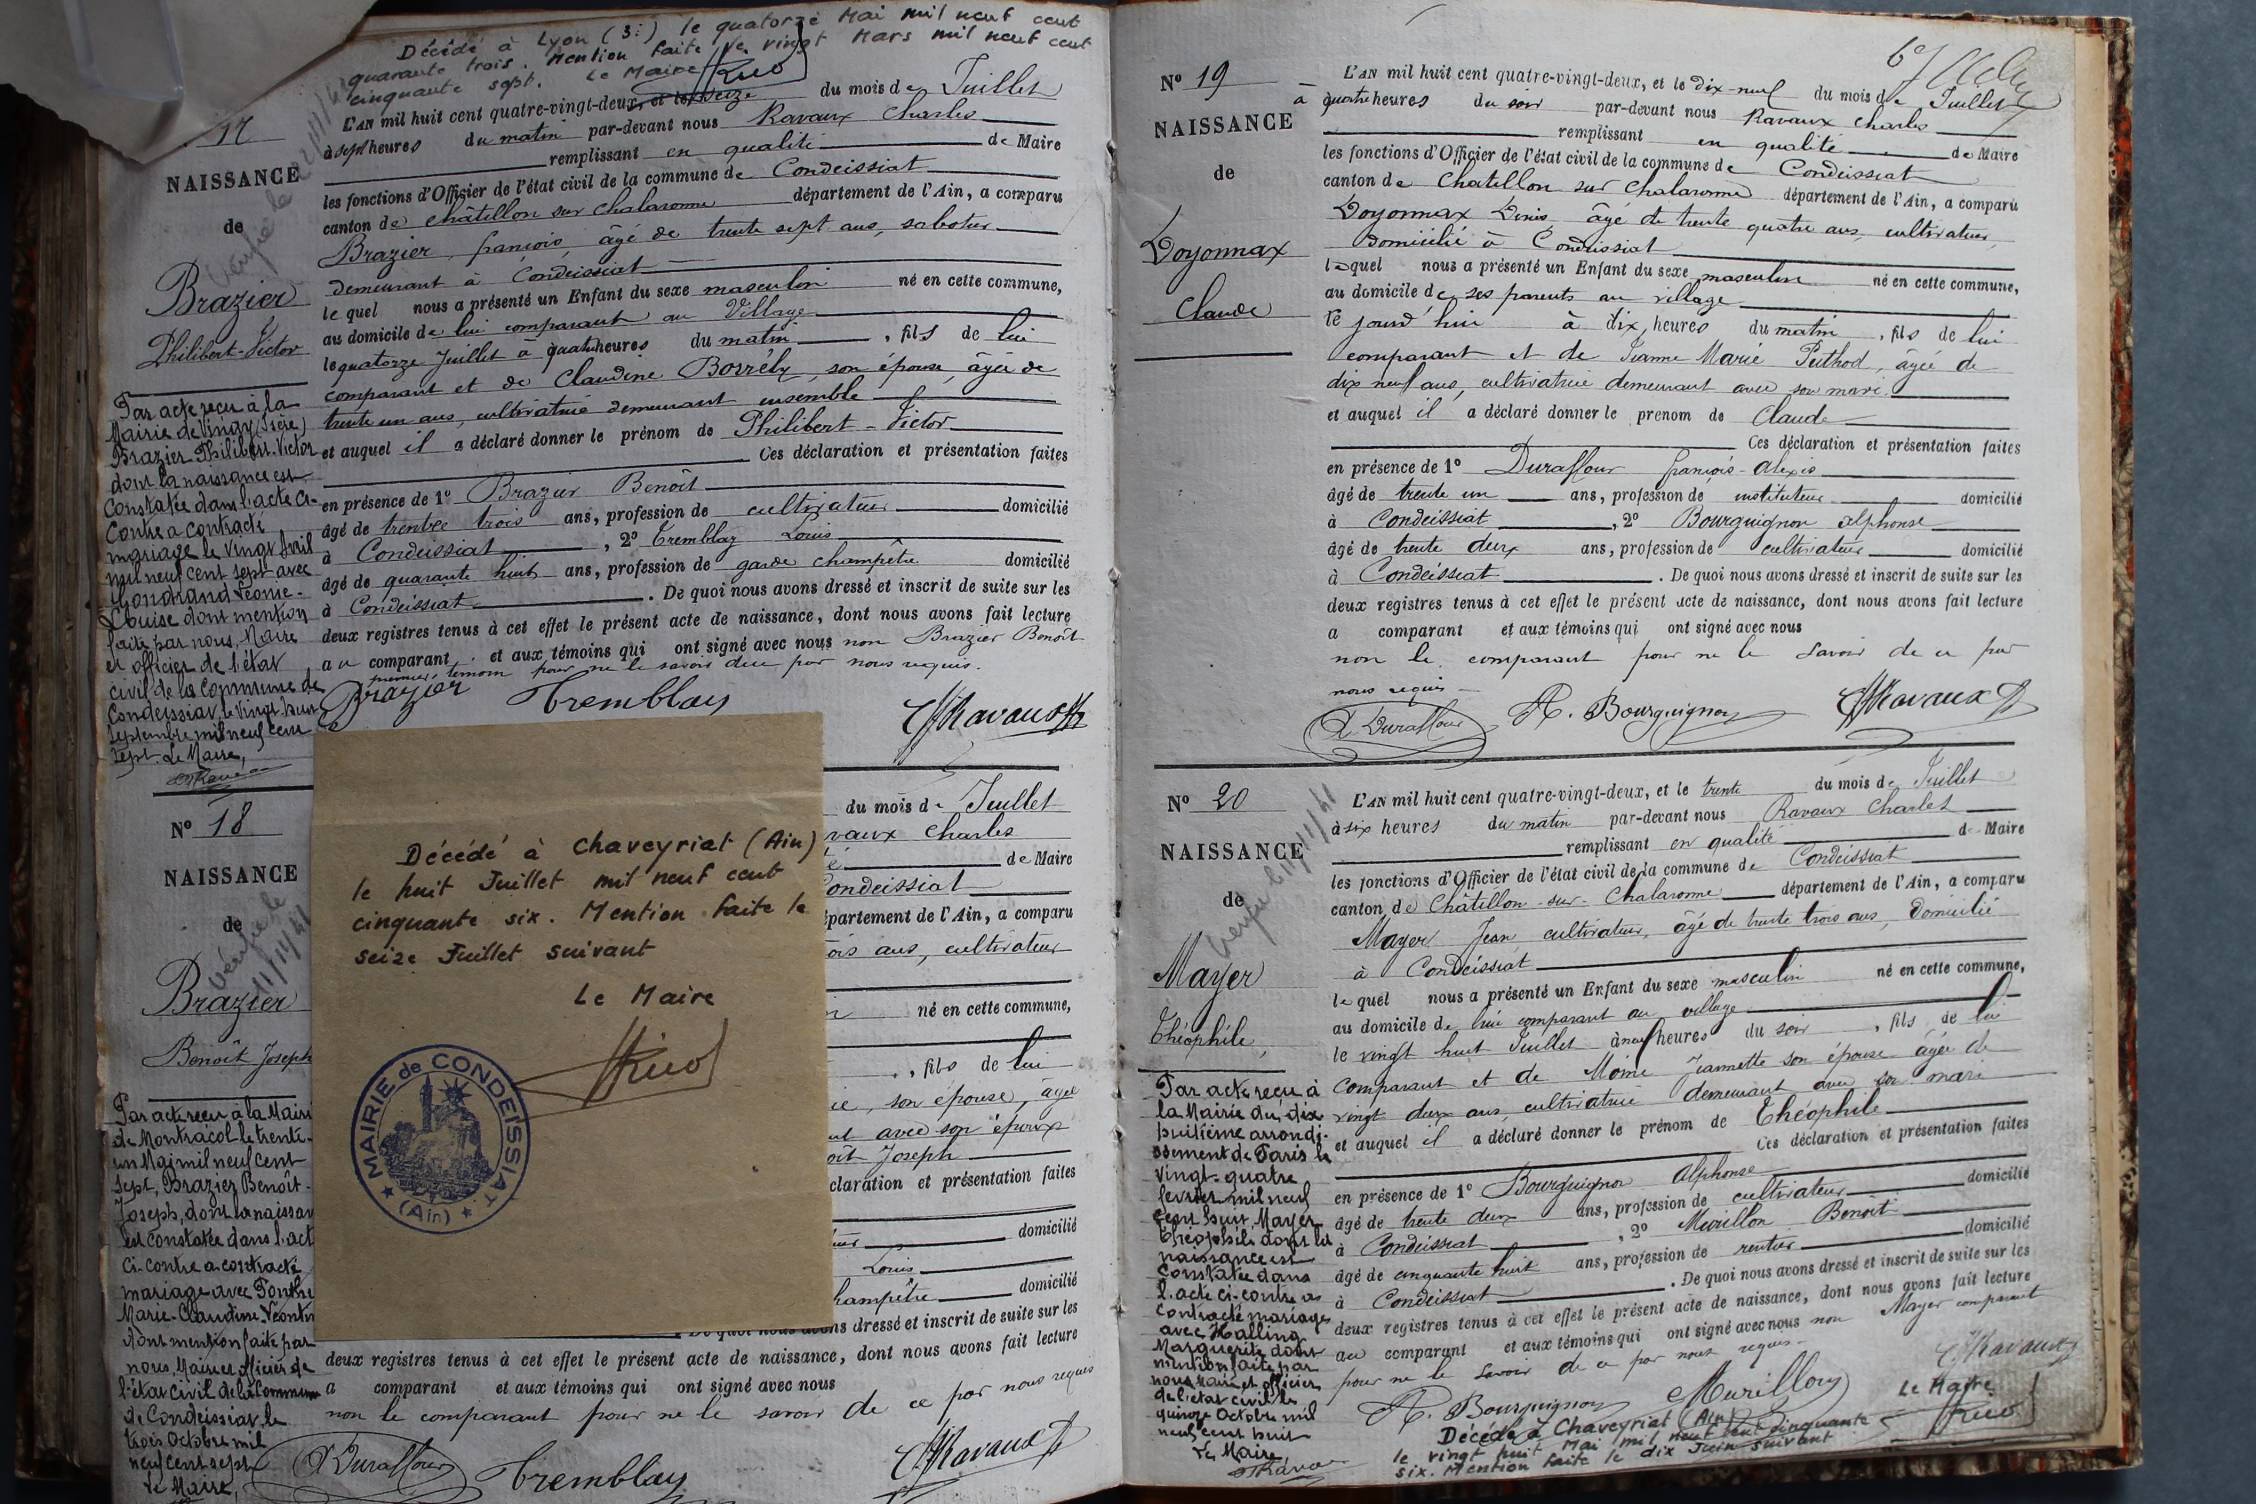 Décédé à Lyon (3e) le quatorze Mai mil neuf cent
quarante trois. Mention faite le vingt Mars mil neuf cent
cinquante sept. Le Maire
17
NAISSANCE
de
Brazier
Philibert-Victor
L'AN mil huit cent quatre-vingt-deux, et le seize du mois de Juillet
à sept heures du matin par-devant nous Ravaux Charles
remplissant en qualité de Maire
les fonctions d'Officier de l'état civil de la commune de Condeissiat
canton de Châtillon sur Chalaronne département de l'Ain, a comparu
Brazier, françois, âgé de trente sept ans, sabotier
demeurant à Condeissiat
le quel nous a présenté un Enfant du sexe masculin né en cette commune,
au domicile de lui comparant au Village
le quatorze Juillet à quatre heures du matin, fils de lui
comparant et de Claudine , son épouse, âgée de
trente un ans, cultivatrice demeurant ensemble
et auquel il a déclaré donner le prénom de Philibert-Victor
Ces déclaration et présentation faites
en présence de 1° Brazier Benoît
âgé de trente trois ans, profession de cultivateur domicilié
à Condeissiat, 2° Tremblay Louis
âgé de quarante huit ans, profession de garde champêtre domicilié
à Condeissiat. De quoi nous avons dressé et inscrit de suite sur les
deux registres tenus à cet effet le présent acte de naissance, dont nous avons fait lecture
au comparant et aux témoins qui ont signé avec nous non Brazier Benoît
premier témoin pour ne le savoir de ce par nous requis.
Brazier Tremblay Ch Ravaux
Par acte reçu à la
Mairie de Vinay (Isère)
Brazier Philibert-Victor
dont la naissance est
constatée dans l'acte ci-
contre a contracté
mariage le vingt Avril
mil neuf cent sept avec
Gondrand Léonie-
Louise dont mention
faite par nous, Maire
et officier de l'état
civil de la Commune de
Condeissiat, le vingt huit
septembre mil neuf cent
sept. Le Maire,
N° 18
NAISSANCE
de
Brazier
Benoît Joseph
Vérifié le
11/11/41
du mois de Juillet
vaux Charles
de Maire
Condeissiat
épartement de l'Ain, a comparu
ois ans, cultivateur
né en cette commune,
, fils de lui
ie, son épouse, âgée
nt avec son époux
oît Joseph
claration et présentation faites
domicilié
Louis
hampêtre domicilié
De quoi nous avons dressé et inscrit de suite sur les
deux registres tenus à cet effet le présent acte de naissance, dont nous avons fait lecture
a comparant et aux témoins qui ont signé avec nous
non le comparant pour ne le savoir de ce par nous requis
A Duraffour Tremblay Ch Ravaux
Par acte reçu à la Mairi
de Montracol le trente-
un Mai mil neuf cent
sept, Brazier Benoît-
Joseph, dont la naissan
est constatée dans l'act
ci-contre a contracté
mariage avec
Marie-Claudine
dont mention faite par
nous, Maire et officier de
l'état civil de la Commune
de Condeissiat, le
trois Octobre mil
neuf cent sept
Le Maire,
Décédé à Chaveyriat (Ain)
le huit Juillet mil neuf cent
cinquante six. Mention faite le
seize Juillet suivant
Le Maire
MAIRIE de CONDEISSIAT
(Ain)
67
N° 19
NAISSANCE
de
Doyonnax
Claude
L'AN mil huit cent quatre-vingt-deux, et le dix-neuf du mois de Juillet
à quatre heures du soir par-devant nous Ravaux Charles
remplissant en qualité de Maire
les fonctions d'Officier de l'état civil de la commune de Condeissiat
canton de Chatillon sur Chalaronne département de l'Ain, a comparu
Doyonnax Denis âgé de trente quatre ans, cultivateur,
domicilié à Condeissiat
lequel nous a présenté un Enfant du sexe masculin né en cette commune,
au domicile de ses parents au village
ce jourd'hui à dix heures du matin, fils de lui
comparant et de Jeanne Marie Puthod, âgée de
dix neuf ans, cultivatrice demeurant avec son mari.
et auquel il a déclaré donner le prenom de Claude
Ces déclaration et présentation faites
en présence de 1° Duraffour françois-Alexis
âgé de trente un ans, profession de instituteur domicilié
à Condeissiat, 2° Bourguignon Alphonse
âgé de trente deux ans, profession de cultivateur domicilié
à Condeissiat. De quoi nous avons dressé et inscrit de suite sur les
deux registres tenus à cet effet le présent acte de naissance, dont nous avons fait lecture
a comparant et aux témoins qui ont signé avec nous
non le comparant pour ne le savoir de ce par
nous requis
A Duraffour A. Bourguignon Ch Ravaux
N° 20
NAISSANCE
de
Mayer
Théophile,
Vérifié le 11/11/41
L'AN mil huit cent quatre-vingt-deux, et le trente du mois de Juillet
à six heures du matin par-devant nous Ravaux Charles
remplissant en qualité de Maire
les fonctions d'Officier de l'état civil de la commune de Condeissiat
canton de Châtillon-sur-Chalaronne département de l'Ain, a comparu
Mayer Jean, cultivateur, âgé de trente trois ans, domicilié
à Condeissiat
lequel nous a présenté un Enfant du sexe masculin né en cette commune,
au domicile de lui comparant au village
le vingt huit Juillet à neuf heures du soir, fils de lui
comparant et de Jeannette son épouse âgée de
vingt deux ans, cultivatrice demeurant avec son mari
et auquel il a déclaré donner le prénom de Théophile
Ces déclaration et présentation faites
en présence de 1° Bourguignon Alphonse
âgé de trente deux ans, profession de cultivateur domicilié
à Condeissiat, 2° Murillon Benoit
âgé de cinquante huit ans, profession de rentier domicilié
à Condeissiat. De quoi nous avons dressé et inscrit de suite sur les
deux registres tenus à cet effet le présent acte de naissance, dont nous avons fait lecture
au comparant et aux témoins qui ont signé avec nous non Mayer comparant
pour ne le savoir de ce par nous requis
A. Bourguignon Murillon Ch Ravaux
Par acte reçu à
la Mairie du dix
huitième arrondi-
ssement de Paris le
vingt-quatre
février mil neuf
cent huit, Mayer
Théophile dont la
naissance est
constatée dans
l'acte ci-contre a
contracté mariage
avec Halling
Marguerite dont
mention faite par
nous maire et officier
de l'état civil le
quinze Octobre mil
neuf cent huit
Le Maire
Le Maire
Décédé à Chaveyriat (Ain)
le vingt huit Mai mil neuf cent cinquante
six. Mention faite le dix Juin suivant